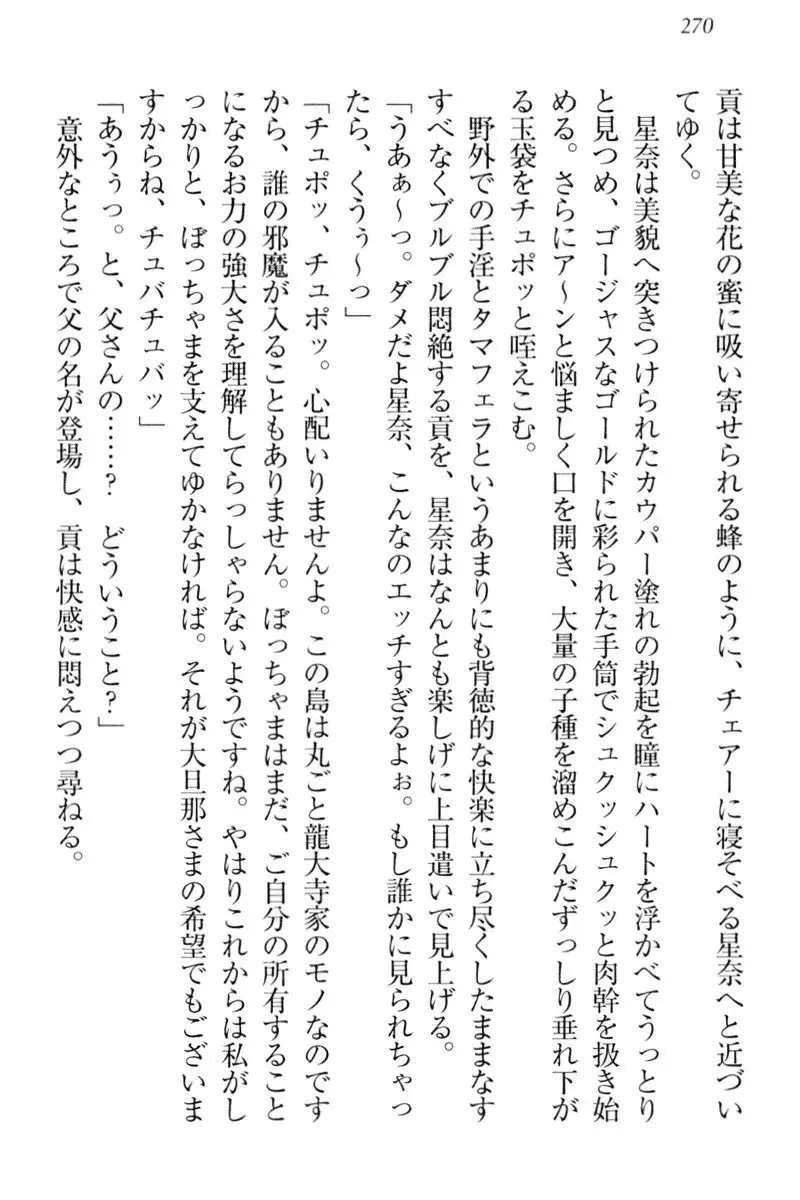 270
貢は甘美な花の蜜に吸い寄せられる蜂のように、チェアーに寝そべる星奈へと近づい
てゆく。
星奈は美貌へ突きつけられたカウパー塗れの勃起を瞳にハートを浮かべてうっとり
と見つめ、ゴージャスなゴールドに彩られた手筒でシュクッシュクッと肉幹を扱き始
める。さらにア〜ンと悩ましく口を開き、大量の子種を溜めこんだずっしり垂れ下が
る玉袋をチュポッと咥えこむ。
野外での手淫とタマフェラというあまりにも背徳的な快楽に立ち尽くしたままなす
すべなくブルブル悶絶する貢を、星奈はなんとも楽しげに上目遣いで見上げる。
「うあぁ〜っ。ダメだよ星奈、こんなのエッチすぎるよぉ。もし誰かに見られちゃっ
たら、くうぅ〜っ」
「チュポッ、チュポッ。心配いりませんよ。この島は丸ごと龍大寺家のモノなのです
から、誰の邪魔が入ることもありません。ぼっちゃまはまだ、ご自分の所有すること
になるお力の強大さを理解してらっしゃらないようですね。やはりこれからは私がし
っかりと、ぼっちゃまを支えてゆかなければ。それが大旦那さまの希望でもございま
すからね、チュバチュバッ」
「あうぅっ。と、父さんの……?　どういうこと?」
意外なところで父の名が登場し、貢は快感に悶えつつ尋ねる。